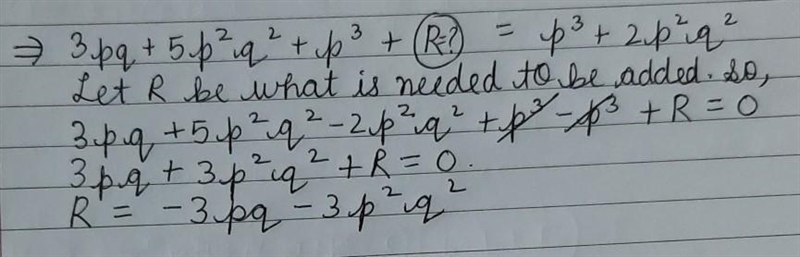 ⇒ 3pq + 5p²q² + p³ + R=? = p³ + 2p²q²
Let R be what is needed to be added. so,
3pq + 5p²q² - 2p²q² + p³ - p³ + R = 0
3pq + 3p²q² + R = 0.
R = -3pq - 3p²q²